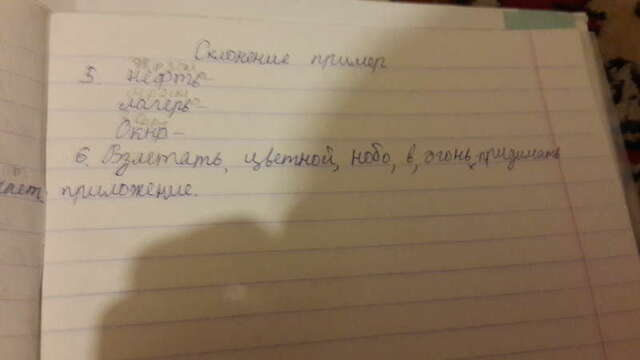 Склонение пример
5. нефть-
лагерь-
Окно-
6. Взлетать, цветной, небо, в, огонь, придумать
приложение.